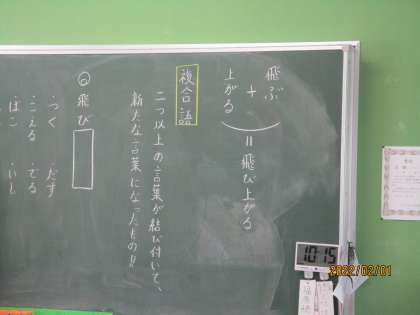 飛ぶ
+
上がる
=飛び上がる
複合語
二つ以上の言葉が結び付いて、
新たな言葉になったもの!!
◎飛び
・つく ・だす
・こえる ・でる
・ばこ ・いし
10:15
2022/02/01